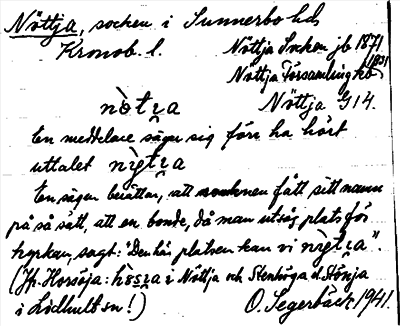 Nöttja, socken i Sunnerbo hd,
Kronob. l. Nöttja Socken jb 1871
Nöttja Församling kb 1931
nòtʒa Nöttja G14.
En meddelare säger sig förr ha hört
uttalet
En sägen berättar, att socknen fått sitt namn
på så sätt, att en bonde, då man utsåg plats för
kyrkan, sagt: "Den här platsen kan vi
(Jfr. Horsöja: i Nöttja och Stenhöga d. Stönja
i Lidhult sn!) O. Segerbäck, 1941.